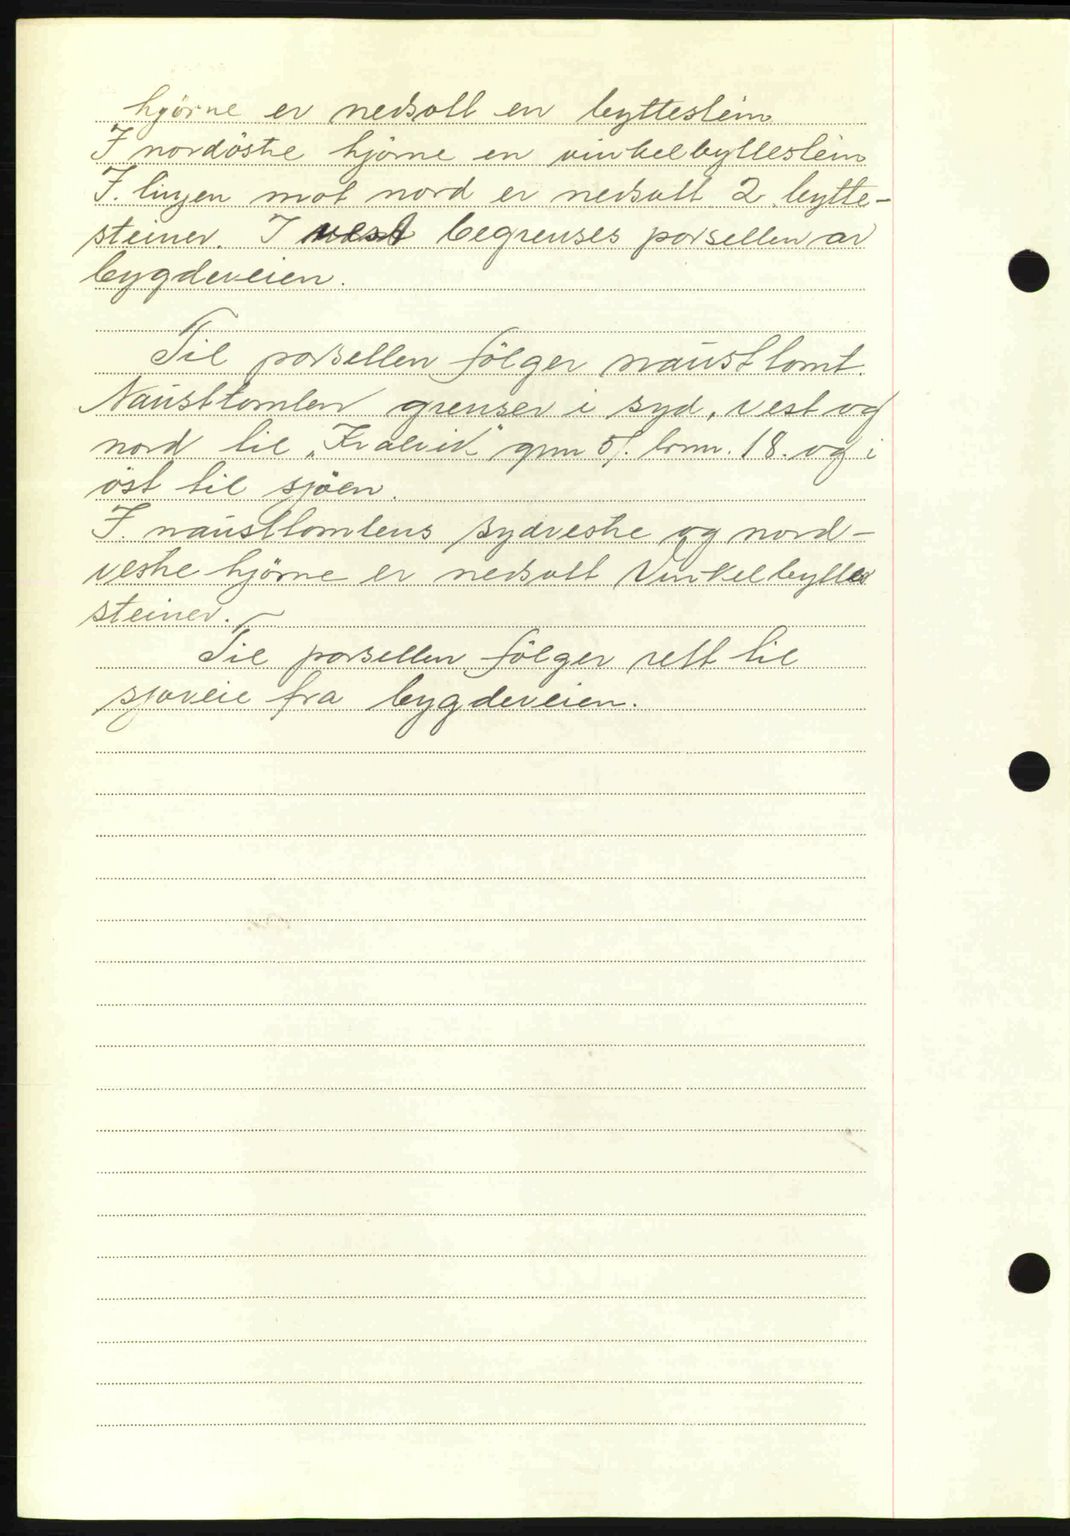 hjørne er nedsatt en byttestein
I nordöstre hjörne en vinkelbyttestein
I. linjen mot nord er nedsatt 2 bytte-
steiner. I vest begrenses parsellen av
bygdeveien.
Til parsellen fölger nausttomt.
Nausttomten grenser i syd, vest og
nord til gnr 5/. brnr. 18. og i
öst til sjöen.
I. nausttomtens sydvestre og nord-
vestre hjörne er nedsatt vinkelbytte
steiner. —
Til parsellen fölger rett til
sjøveie fra bygdeveien.